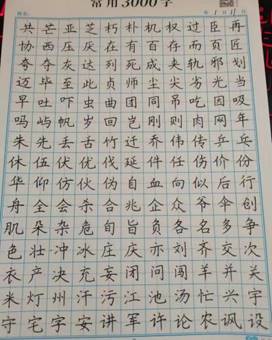 常用3000字
共芒亚芝朽朴机权过臣再
协西压厌在有百存而页匠
夸夺灰达列死成夹轨邪划
迈毕至此贞师尘尖劣光当
早吐吓虫曲团同吊吃因吸
吗屿帆岁回岂刚则肉网年
朱先丢舌竹迁乔伟传乒乓
休伍伏优伐延件任伤价份
华仰仿伙伪自血向似后行
舟全会杀合兆企众爷伞创
肌朵杂危旬旨负各名多争
色壮冲冰庄庆亦刘齐交次
衣产决充妄闭问闯羊并关
米灯州汗污江池汤忙兴宇
守宅字安讲军许论农讽设